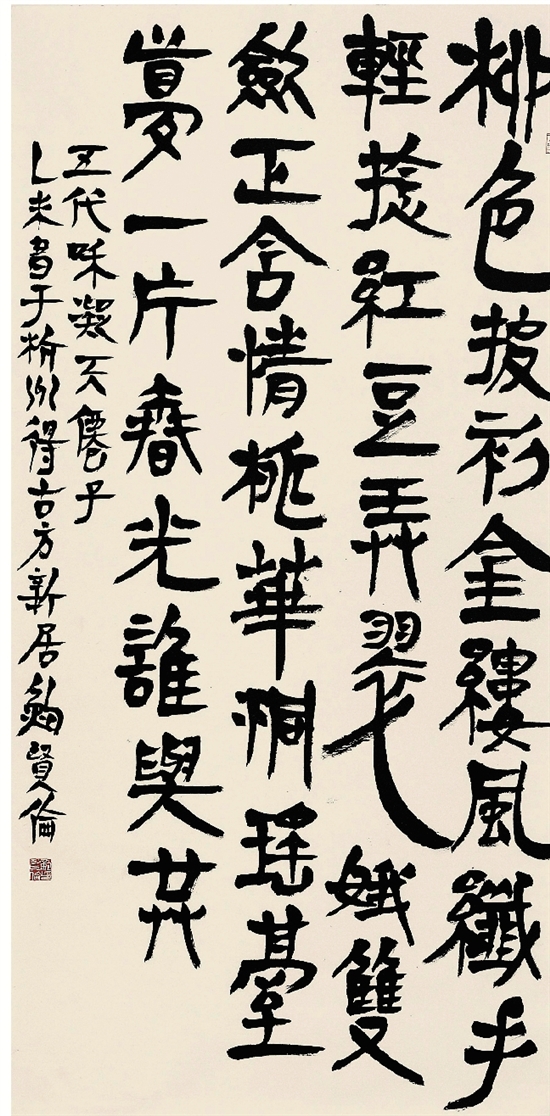 柳色披衫金縷鳳纖手
輕捻紅豆弄翠娥雙
斂正含情桃華洞瑤臺
夢一片春光誰與共
五代和凝天僊子
乙未書于杭州得古方新居鮑賢倫